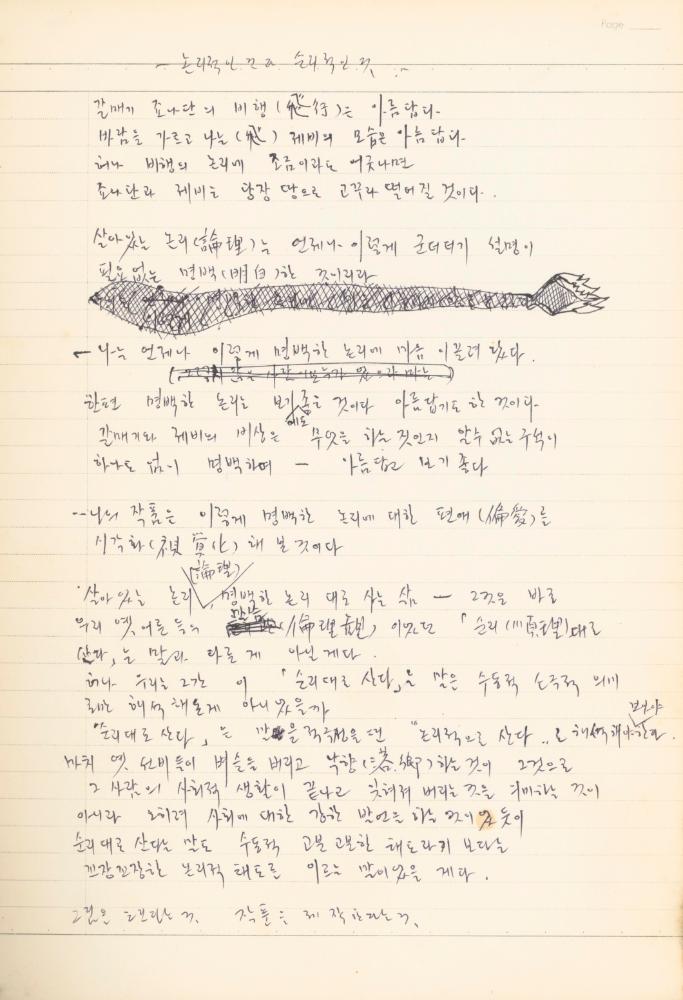 Page
— 논리적인 것과 순리적인 것
갈매기 죠나단의 비행(飛行)은 아름답다.
바람을 가르고 나는(飛) 제비의 모습은 아름답다.
허나 비행의 논리에 조금이라도 어긋나면
죠나단과 제비는 당장 땅으로 고꾸라 떨어질 것이다.
살아있는 논리(論理)는 언제나 이렇게 군더더기 설명이
필요없는 명백(明白)한 것이리라
나는 언제나 이렇게 명백한 논리에 마음 이끌려 왔다.
한편 명백한 논리는 보기에도 좋을 것이다 아름답기도 한 것이다
갈매기와 제비의 비상은 무엇을 하는 짓인지 알수 없는 구석이
하나도 없이 명백하며 — 아름답고 보기 좋다
나의 작품은 이렇게 명백한 논리에 대한 편애(偏愛)를
시각화(視覚化) 해 본 것이다
살아있는 논리(論理), 명백한 논리 대로 사는 삶 — 그것은 바로
우리 옛 어른들의 말씀(倫理觀)이었던 「순리(順理)대로
산다」는 말과 다른 게 아닐게다.
허나 우리는 그간 이 「순리대로 산다」는 말은 수동적 소극적 의미
로만 해석해온게 아니었을까
"순리대로 산다」는 말을 적극적으로는 "논리적으로 산다"로 해석해야 한다. 보아야
마치 옛 선비들이 벼슬을 버리고 낙향(落鄕)하는것이 그것으로
그 사람의 사회적 생활이 끝나고 잊혀져 버리는 것을 의미하는 것이
아니라 오히려 사회에 대한 강한 발언을 하는 것이었듯이
순리대로 산다는 말도 수동적 고분고분한 태도라기 보다는
꼬장꼬장한 논리적 태도를 이르는 말이었을 게다.
그림은 그린다는 것, 작품은 제작한다는 것,